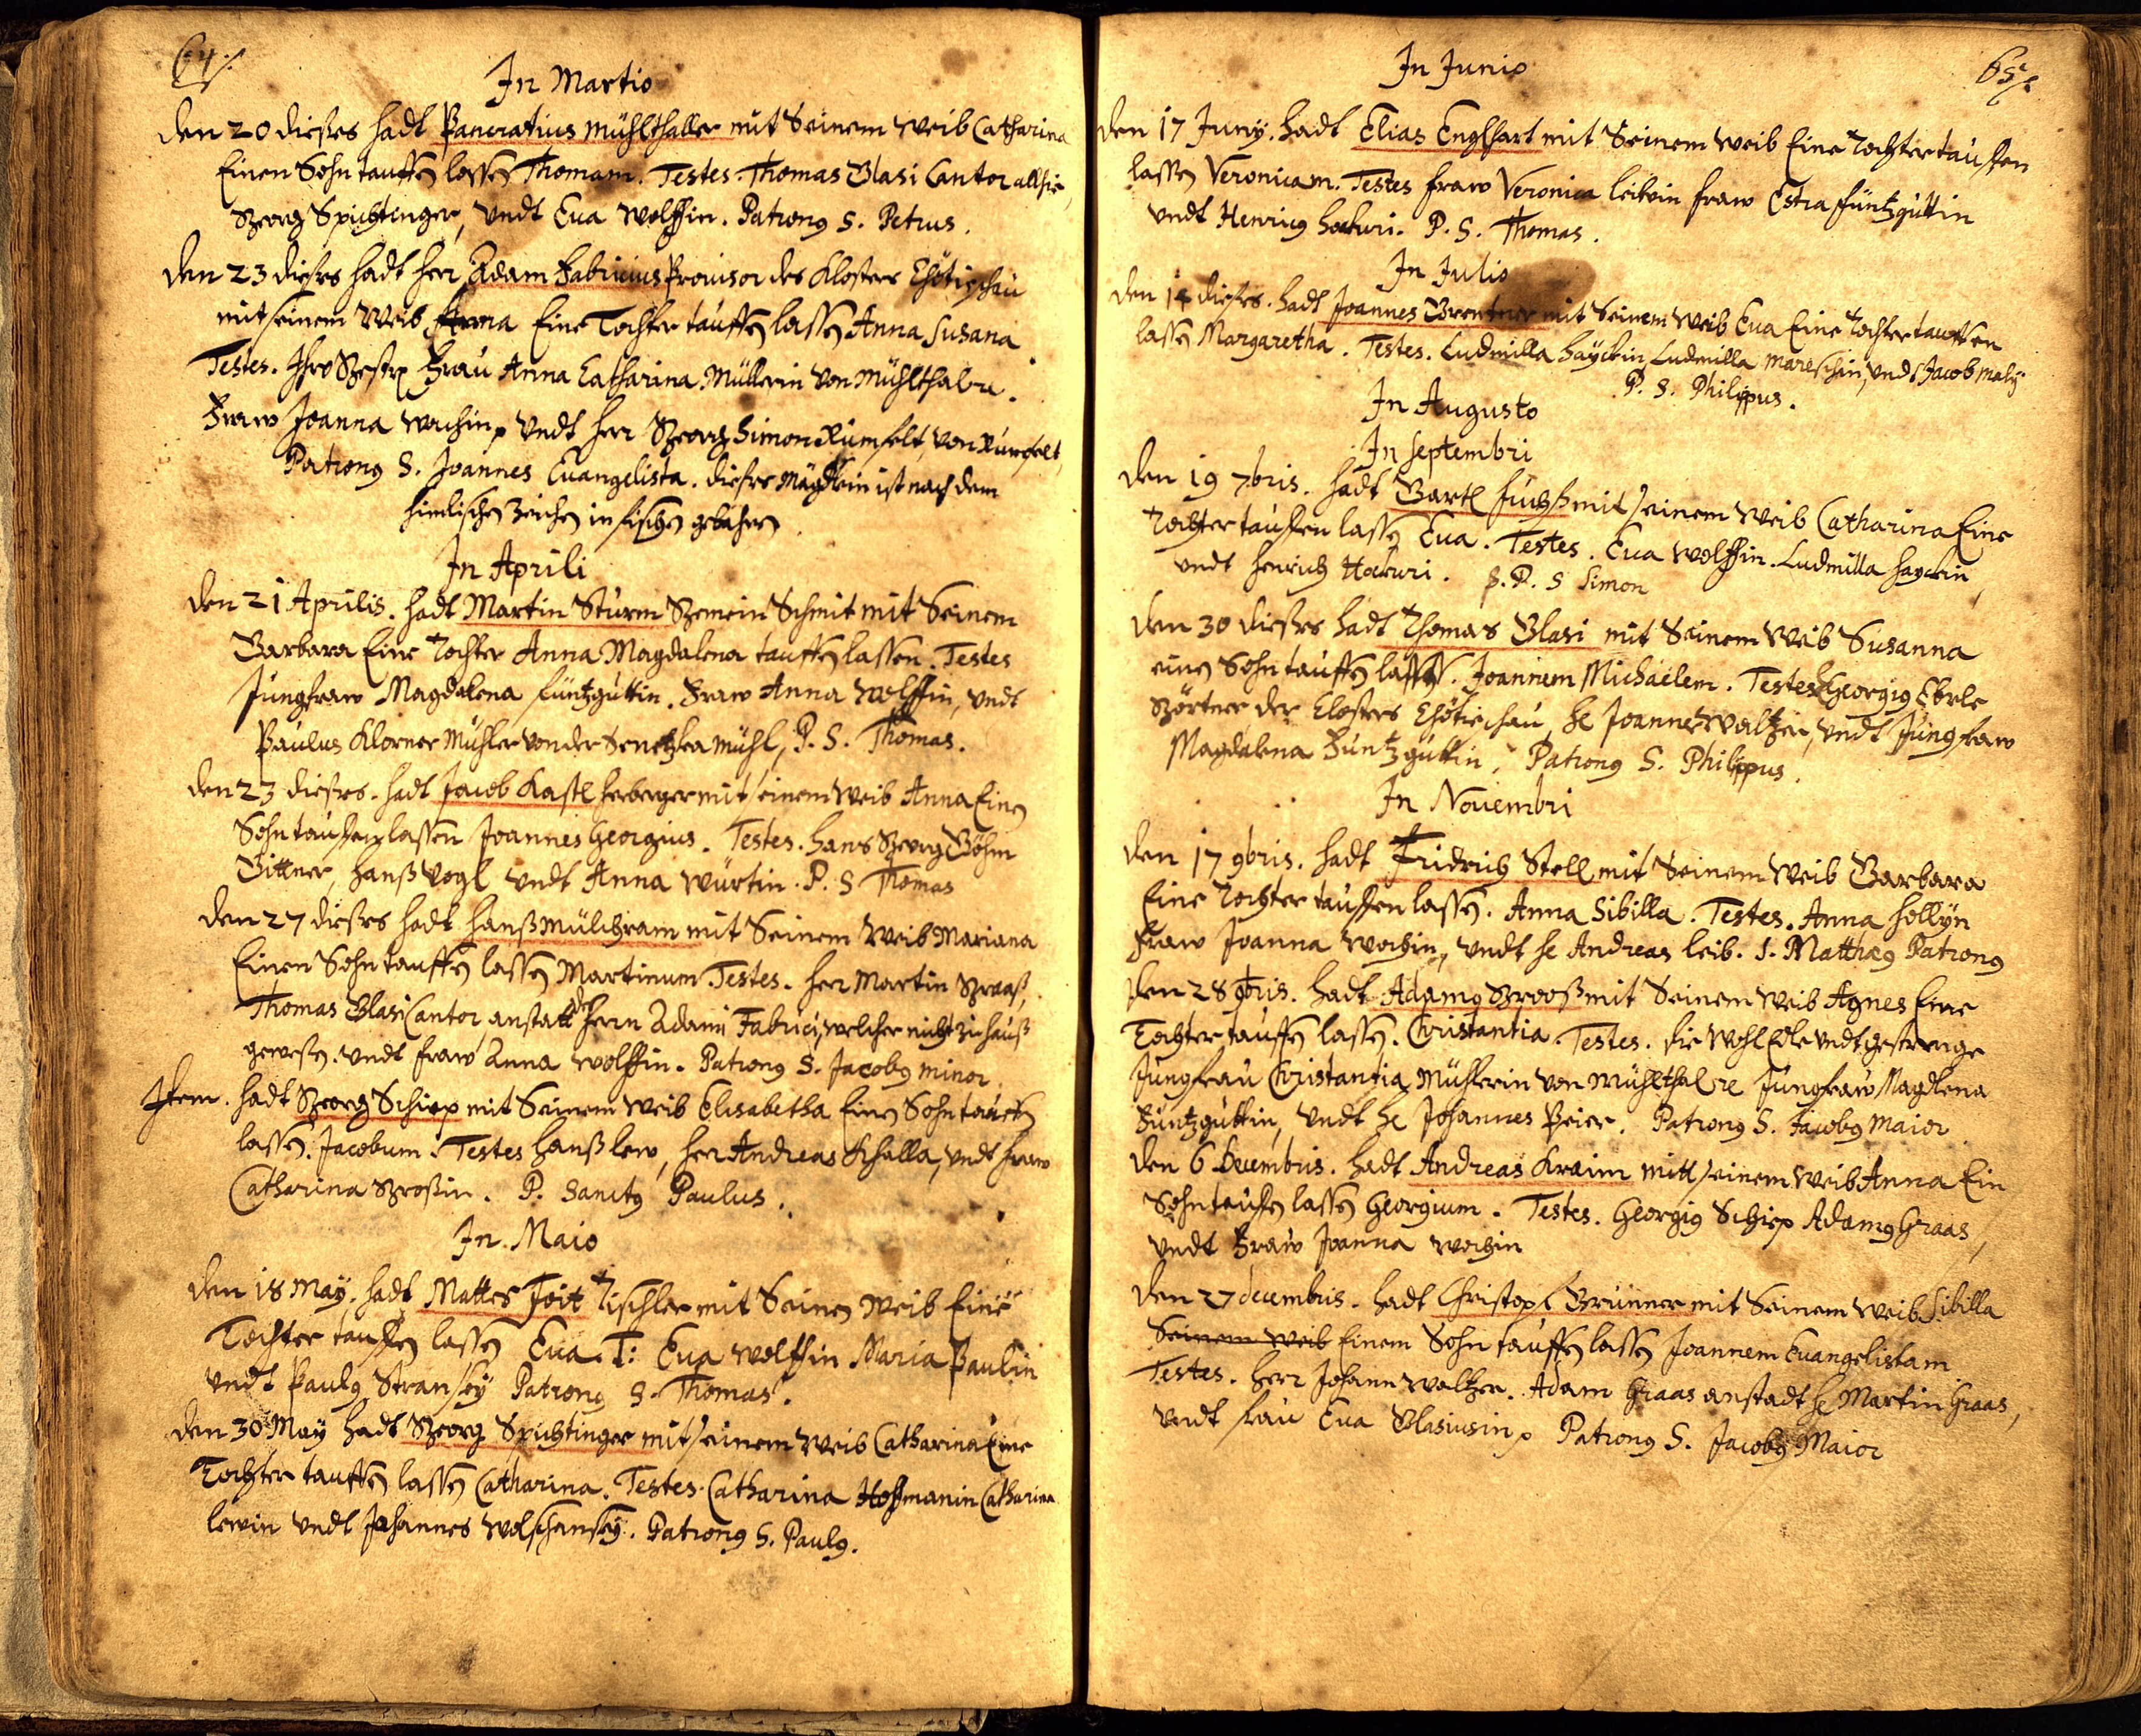 64
In Martio
den 20 dieses hadt Pancratius Mühlthaller mit Seinem weib Catharina
Einen Sohn tauffen lassen Thomam. Testes. Thomas Blasi Cantor allhie,
Georg Spichtinger, undt Eva Wolffin. Patronus S. Petrus.
den 23 dieses hadt herr Adam Fabricius Provisor des Klosters Chotieschau
mit seinem Weib Anna Eine Tochter tauffen lassen Anna Susana
Testes. Ihro Frau Anna Catharina Müllerin von Mühlthal
Fraw Joanna Wochin undt herr Georg Simon
Patronus S. Joannes Evangelista. dieses Mägdlein ist nach dem
himlischen Zeichen in fischen gebohren
In Aprili
den 21 Aprilis. hadt Martin Sturm Gemein Schmit mit Seinem
Barbara Eine Tochter Anna Magdalena tauffen lassen. Testes
Jungfraw Magdalena füntzguttin. Fraw Anna Wolffin, undt
Paulus Klorner Mühler von der mühl, P. S. Thomas.
den 23 dieses. hadt Jacob Kastl herberger mit seinem Weib Anna Einen
Sohn tauffen lassen Joannes Georgius. Testes. hans Georg Böhm
Bittner, hanß Vogl undt Anna Würtin. P. S Thomas
den 27 dieses hadt hanß Mülchram mit Seinem Weib Mariana
Einen Sohn tauffen lassen Martinum. Testes. herr Martin Graaß,
Thomas Blasi Cantor anstatt des Herrn Adami Fabricij, welcher nicht zu hauß
gewesen. undt fraw Anna Wolffin. Patronus S. Jacobus minor.
Item. hadt Georg Schiep mit Seinem Weib Elisabetha Einen Sohn tauffen
lassen. Jacobum. Testes hanß lew, herr Andreas Khalla, undt fraw
Catharina Großin. P. Sanctus Paulus.
In Maio
den 18 May. hadt Mattes Foit Tischler mit Seinen Weib Eine
Tochter tauffen lassen Eva. T: Eva Wolffin Maria Paulin
undt Paulus Stransky Patronus S. Thomas.
den 30 May hadt Georg Spichtinger mit seinem Weib Catharina Eine
Tochter tauffen lassen Catharina. Testes. Catharina Hoffmanin Catharina
lewin undt Johannes Wolschansky. Patronus S. Paulus.
65
In Junio
den 17 Juny. hadt Elias Englhart mit Seinem Weib Eine Tochter tauffen
lassen Veronicam. Testes fraw Veronica leibin fraw füntzguttin
undt Henricus Hockuri. P. S. Thomas.
In Julio
den 14 dieses. hadt Joannes Brentner mit Seinem Weib Eva Eine Tochter tauffen
lassen Margaretha. Testes. Ludmilla hayckin, Ludmilla Mareschin, undt Jacob Maly
P. S. Philippus.
In Augusto
In Septembri
den 19 7bris. hadt Bartl fuchß mit seinem Weib Catharina Eine
Tochter tauffen lassen Eva. Testes. Eva Wolffin. Ludmilla hayckin,
undt Henrich Hockuri. P. S Simon
den 30 dieses hadt Thomas Blasi mit Seinem Weib Susanna
einen Sohn tauffen lassen. Joannem Michaëlem. Testes Georgius Eberle
Görtner des Closters Chotieschau, he Joannes Waltzer, undt Jungfraw
Magdalena Füntzguttin, Patronus S. Philippus.
In Novembri
den 17 9bris. hadt Fridrich Stell mit Seinem Weib Barbara
Eine Tochter tauffen lassen. Anna Sibilla. Testes. Anna hollyn
Fraw Joanna Wochin, undt he Andreas leib. S. Matthæus Patronus
den 28 9bris. hadt Adamus Grooß mit Seinem Weib Agnes Eine
Tochter tauffen lassen. Christantia. Testes. die Wohl Edle undt gestrenge
Jungfrau Christantia Mühlerin von Mühlthal re Jungfraw Magdlena
Füntzguttin, undt he Johannes Peier. Patronus S. Jacobus Maior
den 6 Decembris. hadt Andreas Kraim mitt seinem Weib Anna Ein
Sohn tauffen lassen Georgium. Testes. Georgius Schiep Adamus Graas,
undt Fraw Joanna Wochin
den 27 decembris. hadt Christoph Brunner mit Seinem Weib Sibilla
Seinem Weib Einem Sohn tauffen lassen Joannem Evangelistam
Testes. Herr Johann Waltzer. Adam Graas anstadt he Martin Graas,
undt frau Eva Blasiusin Patronus S. Jacobus Maior